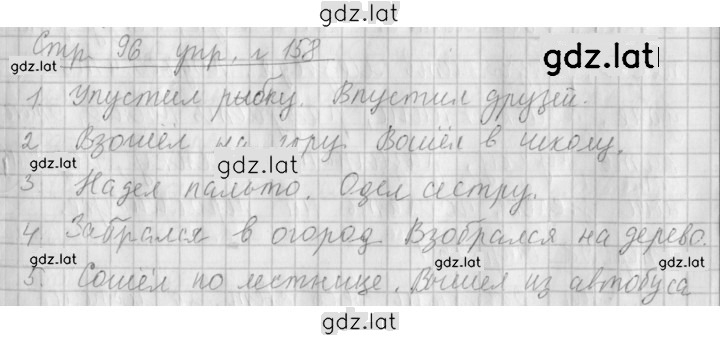 gdz.lat
Стр. 96 упр. г 158
gdz.lat
gdz.lat
1. Упустил рыбку. Впустил друзей.
2 Взошёл на гору. Вошёл в школу.
gdz.lat
gdz.lat
gdz.lat
3 Надел пальто. Одел сестру.
4. Забрался в огород Взобрался на дерево.
gdz.lat
gdz.lat
gdz.lat
5. Сошёл по лестнице. Вышел из автобуса
gdz.lat